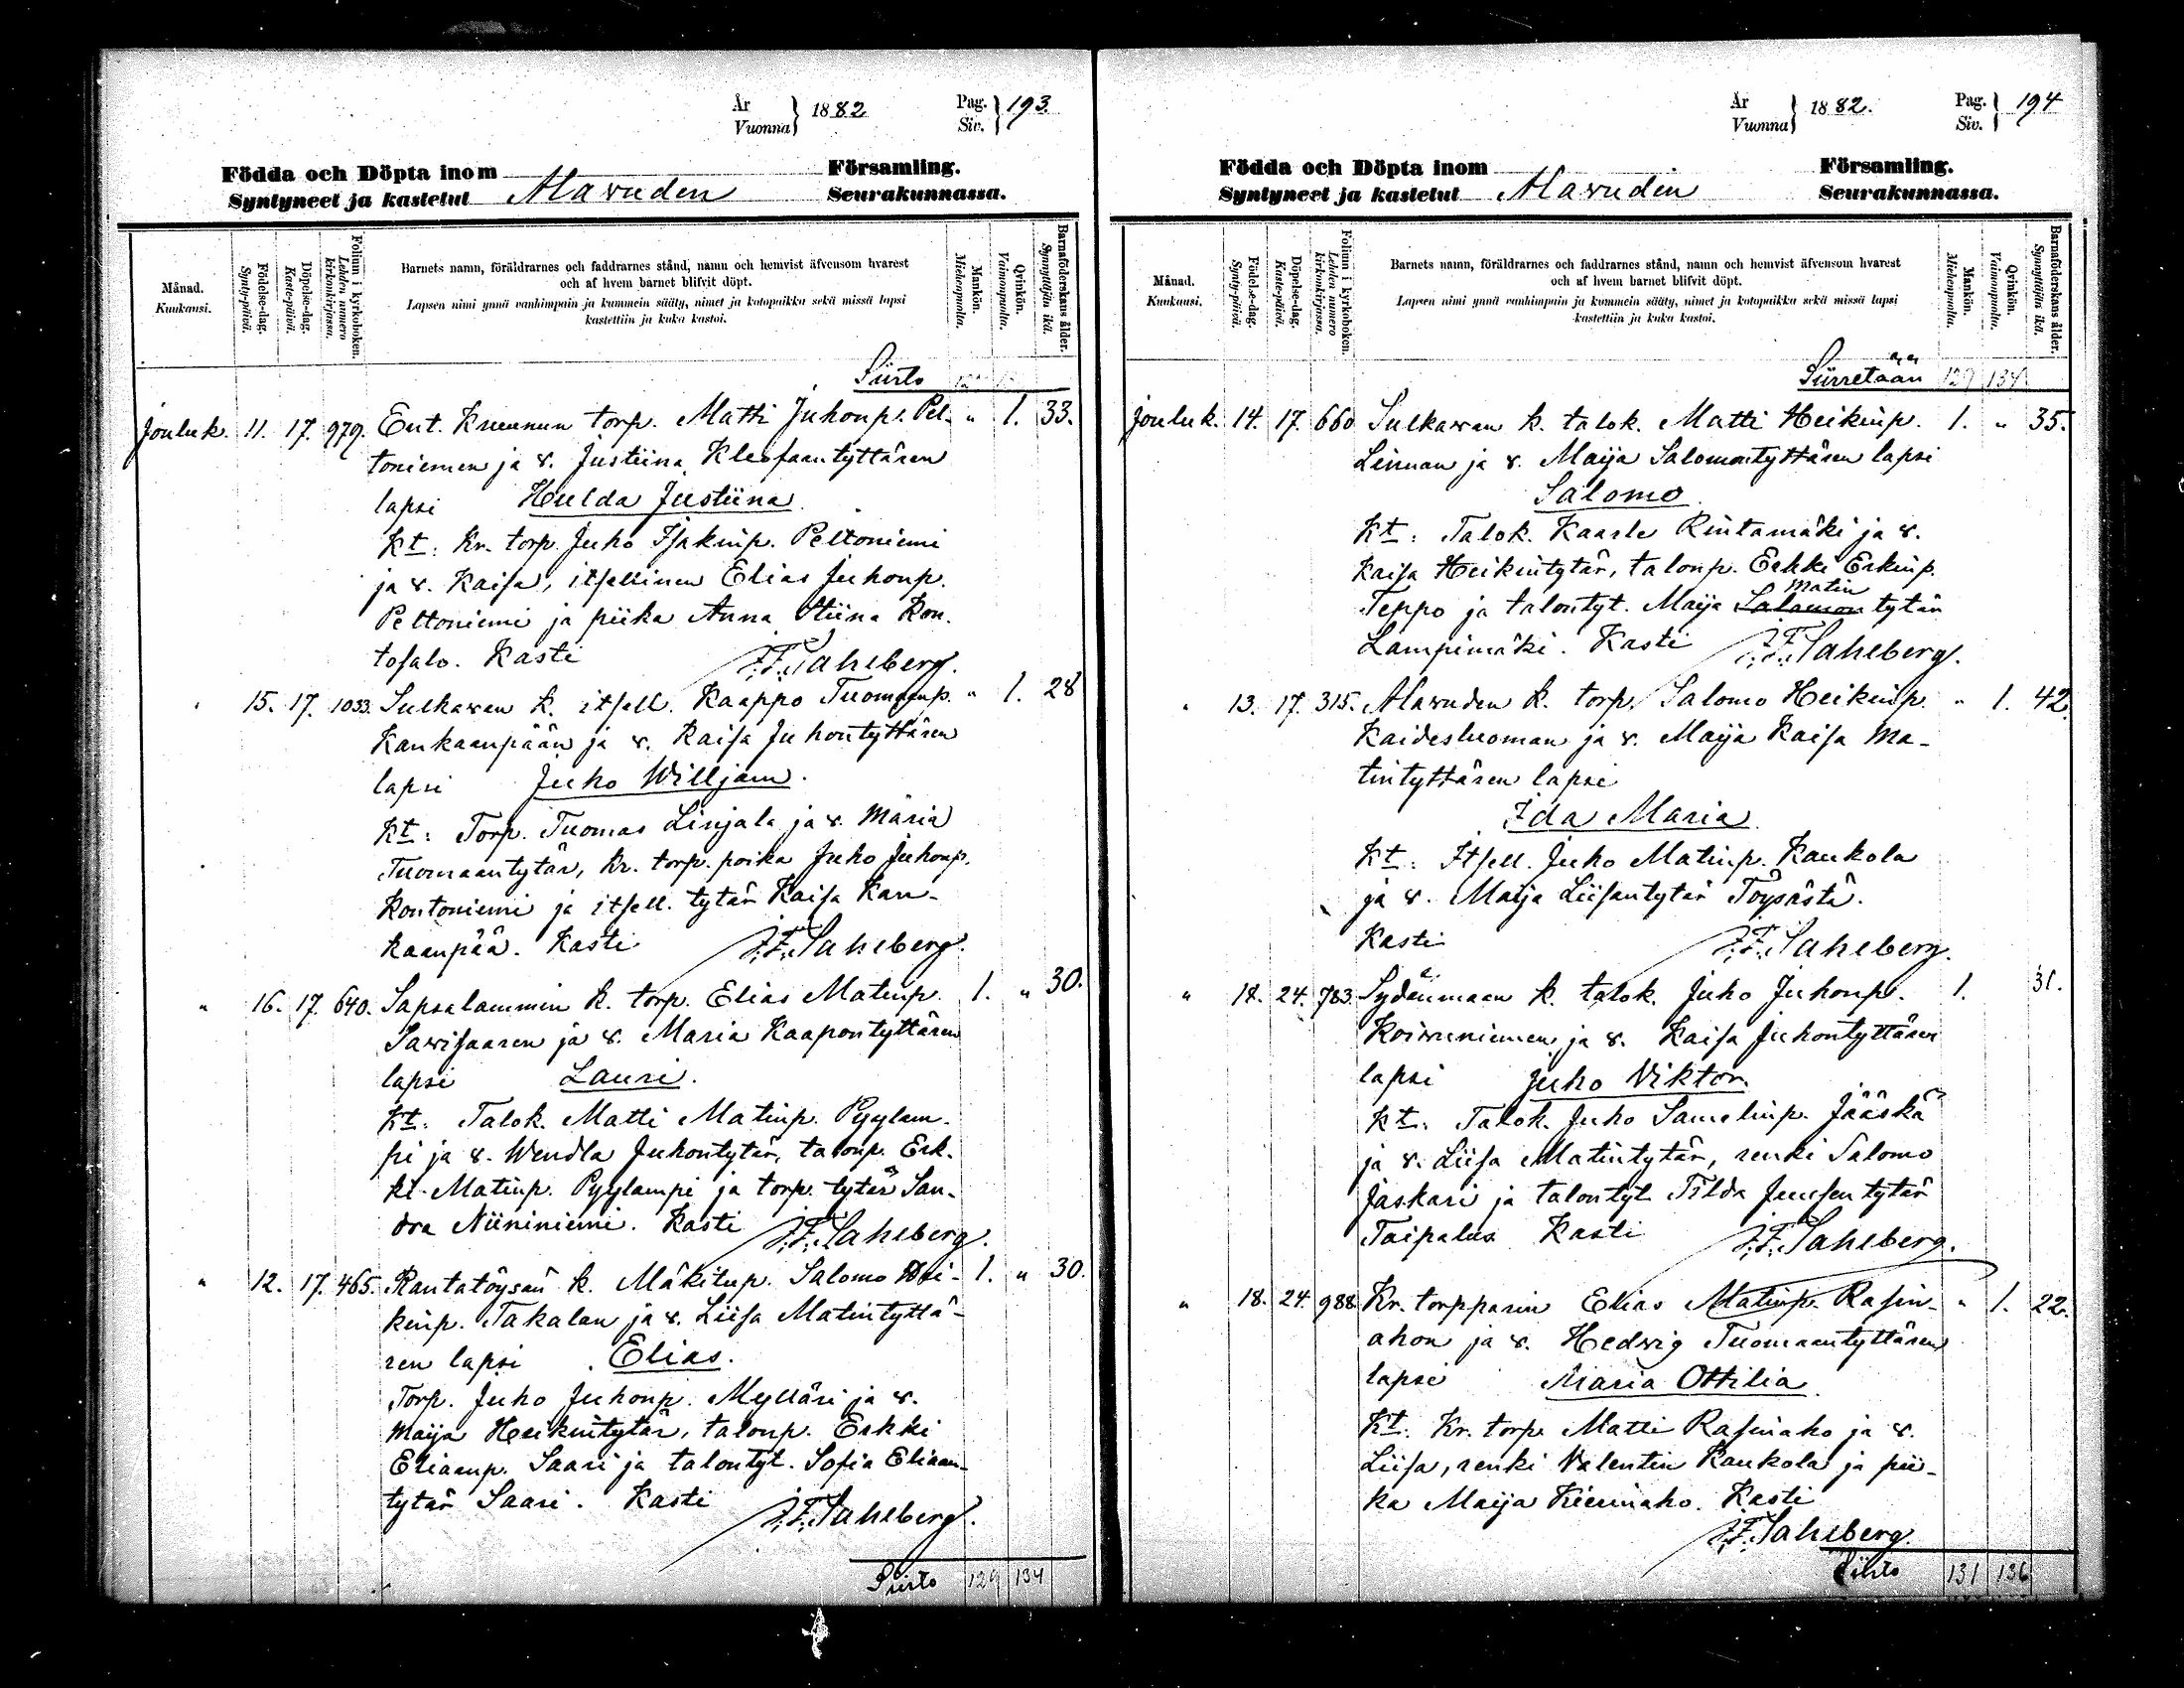 År
Vuonna } 1882 Pag.
Siv. } 193.
Födda och Döpta inom Församling.
Syntyneet ja kastetut Alavuden Seurakunnassa.
Månad.
Kuukausi.
Födelse-dag.
Synty-päivä.
Döpelse-dag.
Kaste-päivä.
Folium i kyrkoboken.
Lehden numero
kirkonkirjassa.
Barnets namn, föräldrarnes och faddrarnes stånd, namn och hemvist äfvensom hvarest
och af hvem barnet blifvit döpt.
Lapsen nimi ynnä vanhimpain ja kummein sääty, nimet ja kotopaikka sekä missä lapsi
kastettiin ja kuka kastoi.
Mankön.
Miehenpuolta.
Qvinkön.
Vaimonpuolta.
Barnaföderskans ålder.
Synnyttäjän ikä.
Siirto
Jouluk. 11. 17. 979. Ent. Kruunun torp. Matti Juhonp. Pel- " 1. 33.
toniemen ja v. Justiina Kleofaantyttären
lapsi Hulda Justiina
Kt: Kr. torp. Juho Isakinp. Peltoniemi
ja v. Kaisa, itsellinen Elias Juhonp.
Peltoniemi ja piika Anna Stiina Kon-
tosalo. Kasti J.F. Sahlberg.
" 15. 17. 1033. Sulkavan k. itsell. Kaappo Tuomaanp. " 1. 28
Kankaanpään ja v. Kaisa Juhontyttären
lapsi Juho Willjam.
Kt: Torp. Tuomas Linjala ja v. Maria
Tuomaantytär, kr. torp. poika Juho Juhonp.
Kontoniemi ja itsell. tytär Kaisa Kan-
kaanpää. Kasti J.F. Sahlberg.
" 16. 17. 640. Sapsalammin k. torp. Elias Matinp. 1. " 30.
Savisaaren ja v. Maria Kaapontyttären
lapsi Lauri.
Kt: Talok. Matti Matinp. Pyylam-
pi ja v. Wendla Juhontytär, talonp. Erk-
ki Matinp. Pyylampi ja torp. tytär San-
dra Niininiemi. Kasti J.F. Sahlberg.
" 12. 17. 465. Rantatöysän k. Mäkitup. Salomo Hei- 1. " 30.
kinp. Takalan ja v. Liisa Matintyttä-
ren lapsi Elias.
Torp. Juho Juhonp. Mylläri ja v.
Maija Heikintytär, talonp. Erkki
Eliaanp. Saari ja talontyt. Sofia Eliaan-
tytär Saari. Kasti J.F. Sahlberg.
Siirto 129 134
År
Vuonna } 1882. Pag.
Siv. } 194
Födda och Döpta inom Församling.
Syntyneet ja kastetut Alavuden Seurakunnassa.
Månad.
Kuukausi.
Födelse-dag.
Synty-päivä.
Döpelse-dag.
Kaste-päivä.
Folium i kyrkoboken.
Lehden numero
kirkonkirjassa.
Barnets namn, föräldrarnes och faddrarnes stånd, namn och hemvist äfvensom hvarest
och af hvem barnet blifvit döpt.
Lapsen nimi ynnä vanhimpain ja kummein sääty, nimet ja kotopaikka sekä missä lapsi
kastettiin ja kuka kastoi.
Mankön.
Miehenpuolta.
Qvinkön.
Vaimonpuolta.
Barnaföderskans ålder.
Synnyttäjän ikä.
Siirretään 129 134
Jouluk. 14. 17. 660 Sulkavan k. talok. Matti Heikinp. 1. " 35.
Linnan ja v. Maija Salomontyttären lapsi
Salomo
Kt: Talok. Kaarle Rintamäki ja v.
Kaisa Heikintytär, talonp. Erkki Erkinp.
Matin
Teppo ja talontyt. Maija Salamon tytär
Lampimäki. Kasti J.F. Sahlberg.
" 13. 17. 315. Alavuden k. torp. Salomo Heikinp. " 1. 42.
Kaidesluoman ja v. Maija Kaisa Ma-
tintyttären lapsi
Ida Maria
Kt: Itsell. Juho Matinp. Kaukola
ja v. Maija Liisantytär Töysästä.
Kasti J.F. Sahlberg.
" 18. 24. 783. Sydänmaan k. talok. Juho Juhonp. 1. 31.
Koivuniemen ja v. Kaisa Juhontyttären
lapsi Juho Viktor.
Kt: Talok. Juho Samelinp. Jääskä
ja v. Liisa Matintytär, renki Salomo
Jaskari ja talontyt. Tilda Juusentytär
Taipalus Kasti J.F. Sahlberg.
" 18. 24. 988. Kr. torpparin Elias Matinp. Rasin- " 1. 22.
ahon ja v. Hedvig Tuomaantyttären
lapsi Maria Ottilia.
Kt. Kr. torp. Matti Rasinaho ja v.
Liisa, renki Valentin Kaukola ja pii-
ka Maija Kierinaho. Kasti
J.F. Sahlberg.
Siirto 131 136